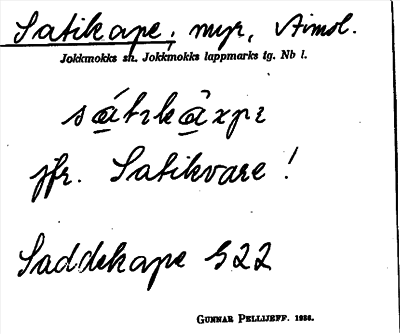 Satikape, myr,
Jokkmokks sn. Jokkmokks lappmarks tg. Nb l.
jfr. Satikvare!
Saddekape 522
GUNNAR PELLIJEFF. 1956.